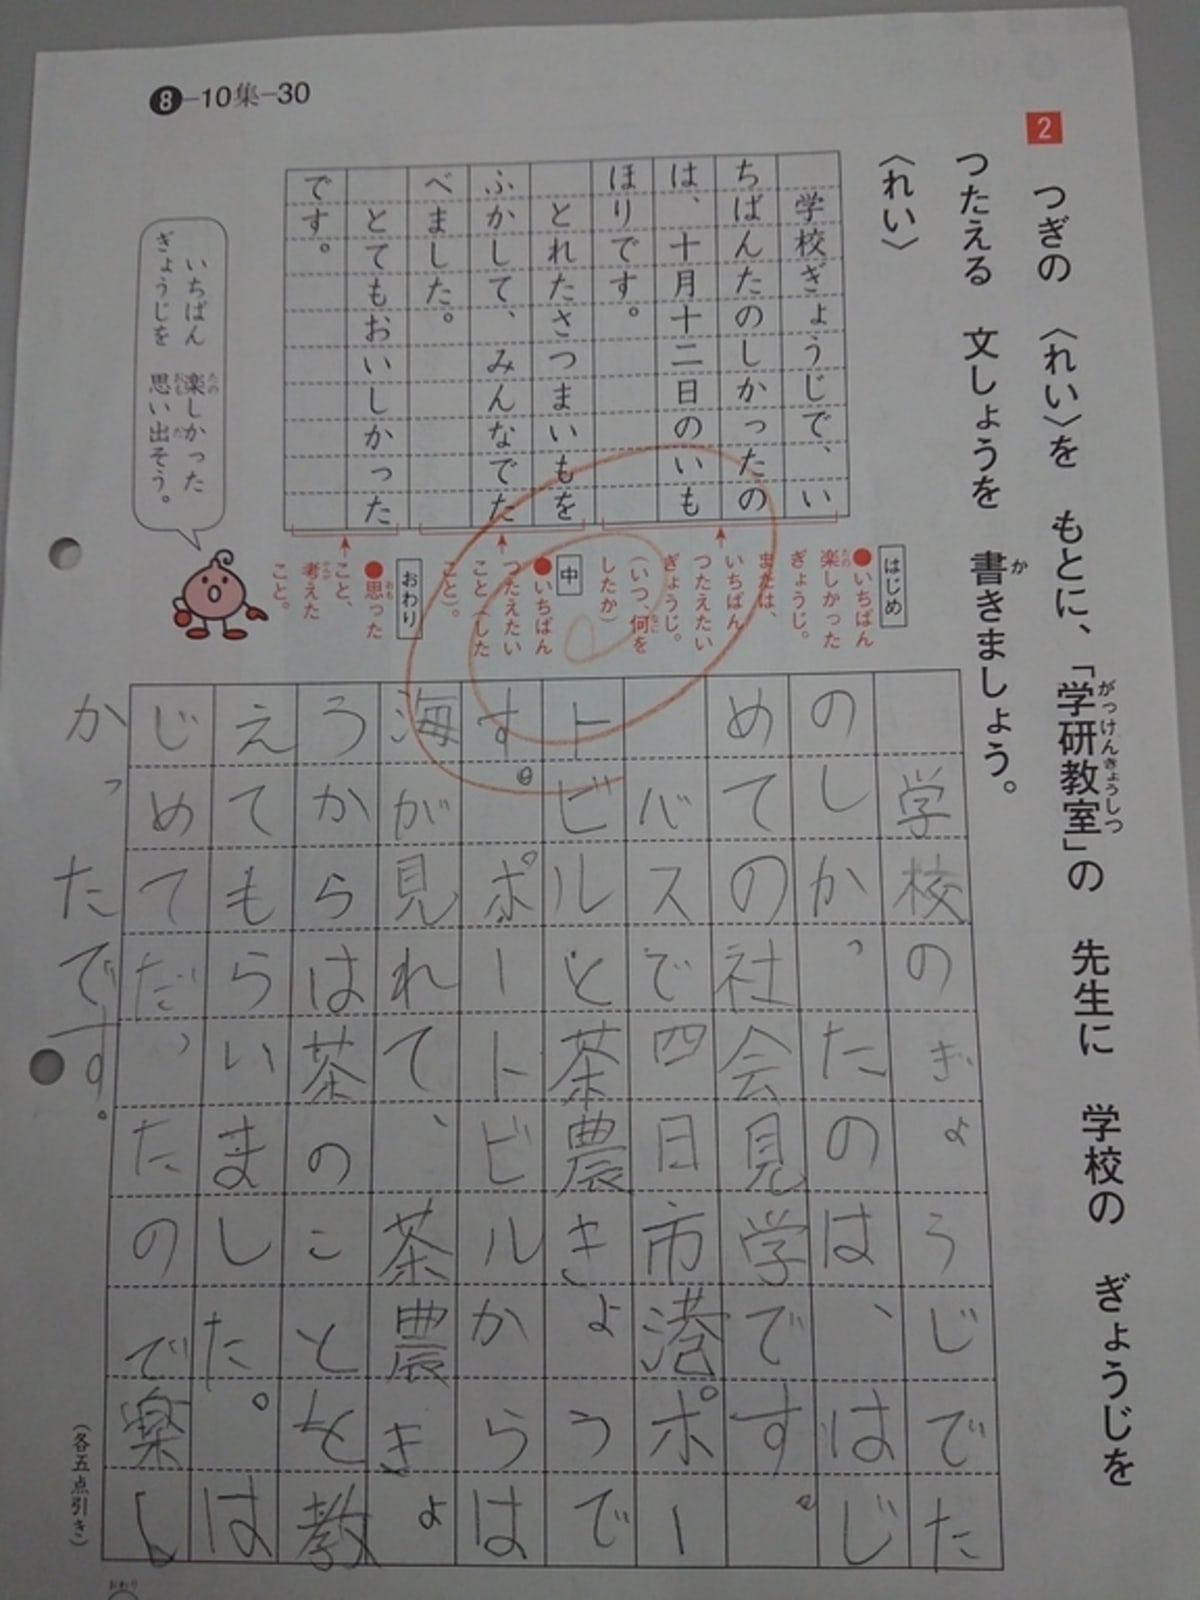 8-10集-30
2
つぎの 〈れい〉を もとに、「学研教室」の 先生に 学校の ぎょうじを
つたえる 文しょうを 書きましょう。
〈れい〉
学校ぎょうじで、い
ちばんたのしかったの
は、十月十二日のいも
ほりです。
とれたさつまいもを
ふかして、みんなでた
べました。
とてもおいしかった
です。
いちばん 楽しかった
ぎょうじを 思い出そう。
はじめ
●いちばん
楽しかった
ぎょうじ。
または、
いちばん
つたえたい
ぎょうじ。
(いつ、何を
したか)
中
●いちばん
つたえたい
こと(した
こと)。
おわり
●思った
こと、
考えた
こと。
学校のぎょうじでた
のしかったのは、はじ
めての社会見学です。
バスで四日市港ポー
トビルと茶農きょうで
す。ポートビルからは
海が見れて、茶農きょ
うからは茶のことを教
えてもらいました。は
じめてだったので楽し
かったです。
(各五点引き)
おわり